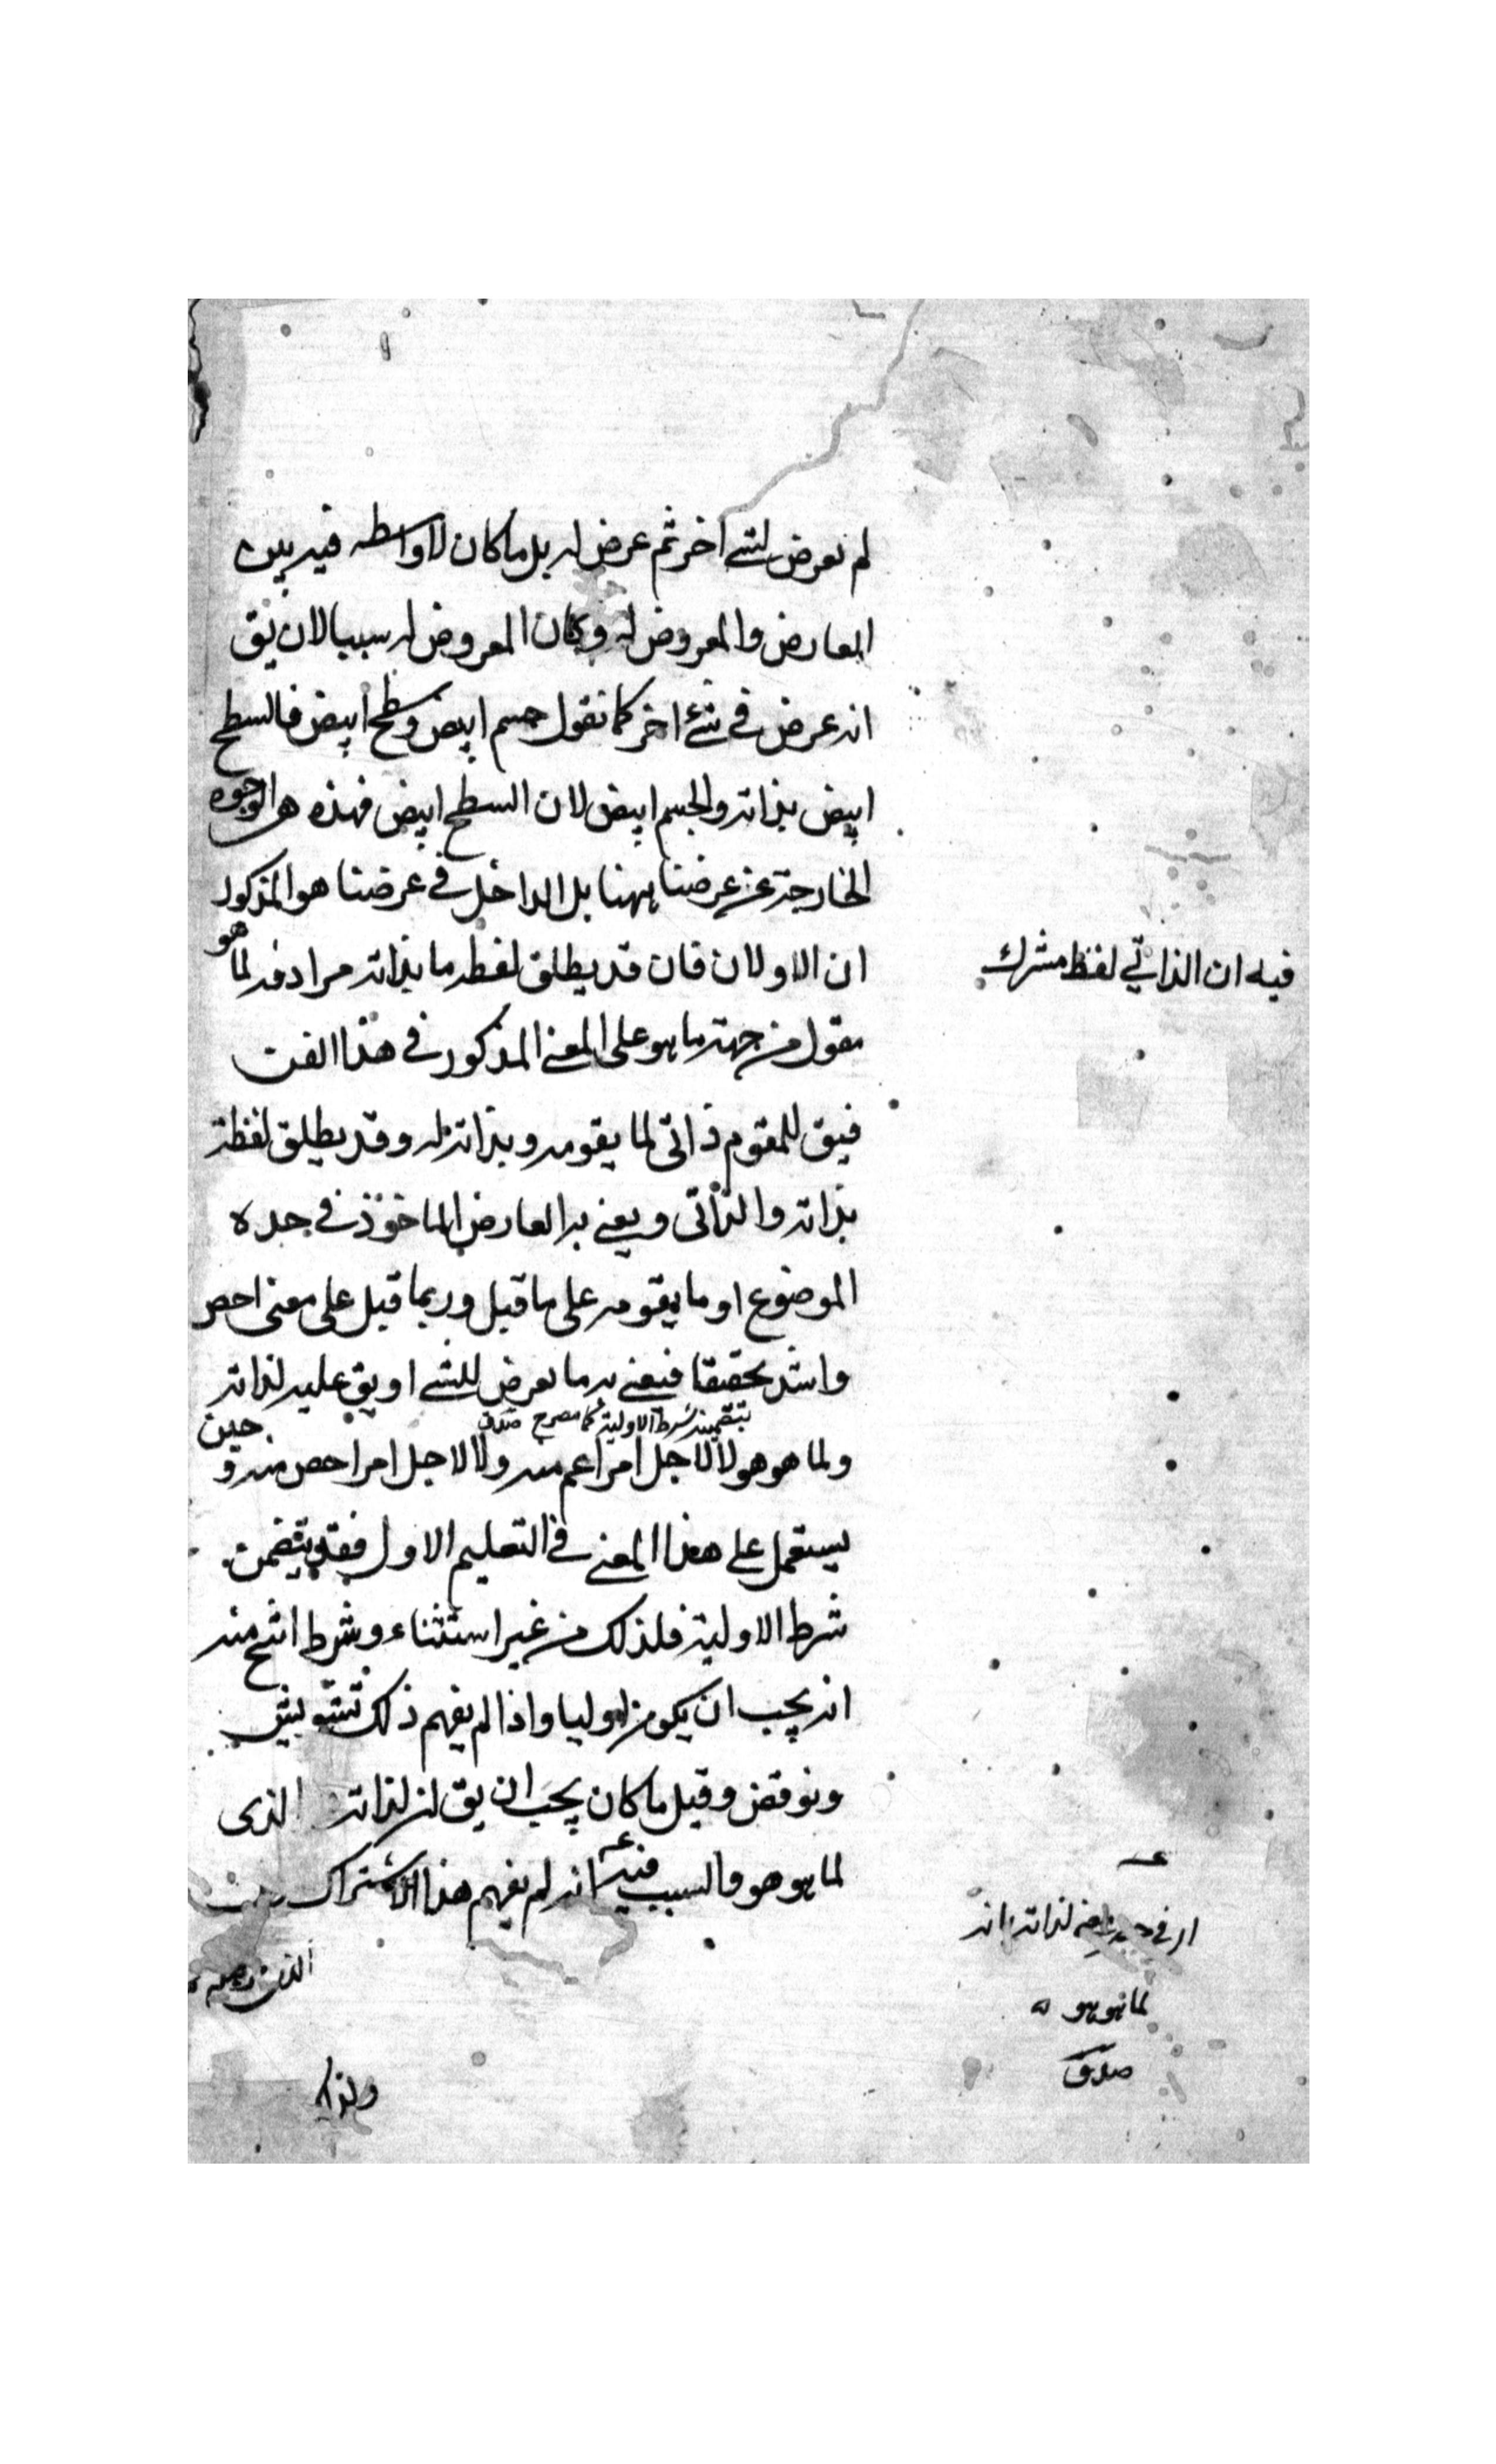 لم يعرض لشئ اخر ثم عرض له بل ما كان لا واسطه فيه بين
العارض والمعروض له وكان المعروض له سببا لان يق
انه عرض فى شئ اخر كما نقول جسم ابيض وسطح ابيض فالسطح
ابيض بذاته والجسم ابيض لان السطح ابيض فهذه هى الوجوه
الخارجة عن غرضنا ههنا بل الداخل فى غرضنا هو المذكور
ان الاولان فان قد يطلق لفظه ما بذاته مرادفه لما هو
فيه ان الذاتي لفظ مشترك
مقول من جهة ما هو على المعنى المذكور فى هذا الفن
فيق للمقوم ذاتى لما يقومه وبذاته له وقد يطلق لفظة
بذاته والذاتى ويعنى به العارض الماخوذ فى حده
الموضوع او ما يقومه على ما قيل وربما قيل على معنى اخص
واشد تحقيقا فيعنى به ما يعرض للشئ او يق عليه لذاته
بتضمينه شرط الاولية كما مصرح صدق
ولما هو هو لا لاجل امر اعم منه ولا لاجل امر اخص منه و حين
يستعمل على هذا المعنى فى التعليم الاول فقد يتضمن
شرط الاولية فلذلك من غير استثناء وشرط انتج منه
انه يجب ان يكون اوليا واذا لم يفهم ذلك تشوش
ونوقض وقيل ما كان يجب ان يق لذاته الذى
لما هو هو والسبب فيه انه لم يفهم هذا الاشتراك
لذاته انه
لما هو هو
صدق
ولذلك